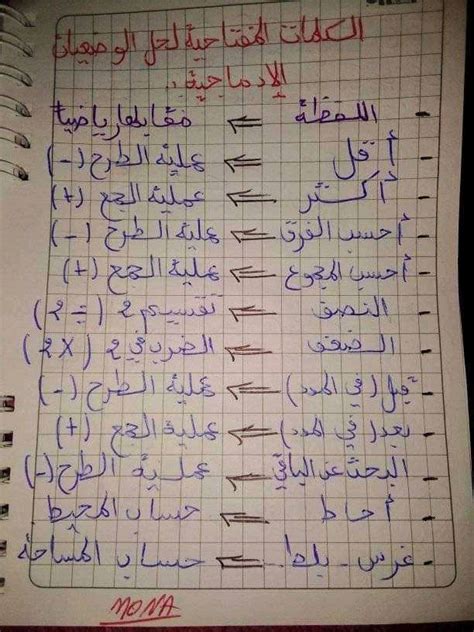 الكلمات المفتاحية لحل الوضعيات
الإدماجية:
- اللفظة ⇐ مقابلها رياضيا
- أقل ⇐ عملية الطرح (-)
- أكثر ⇐ عملية الجمع (+)
- أحسب الفرق ⇐ عملية الطرح (-)
- أحسب المجموع ⇐ عملية الجمع (+)
- النصف ⇐ تقسيم 2 (÷ 2)
- الضعف ⇐ الضرب في 2 (× 2)
- قبل (في المدة) ⇐ عملية الطرح (-)
- بعد (في المدة) ⇐ عملية الجمع (+)
- البحث عن الباقي ⇐ عملية الطرح (-)
- أحاط ⇐ حساب المحيط
- غرس - بلط ⇐ حساب المساحة
MONA